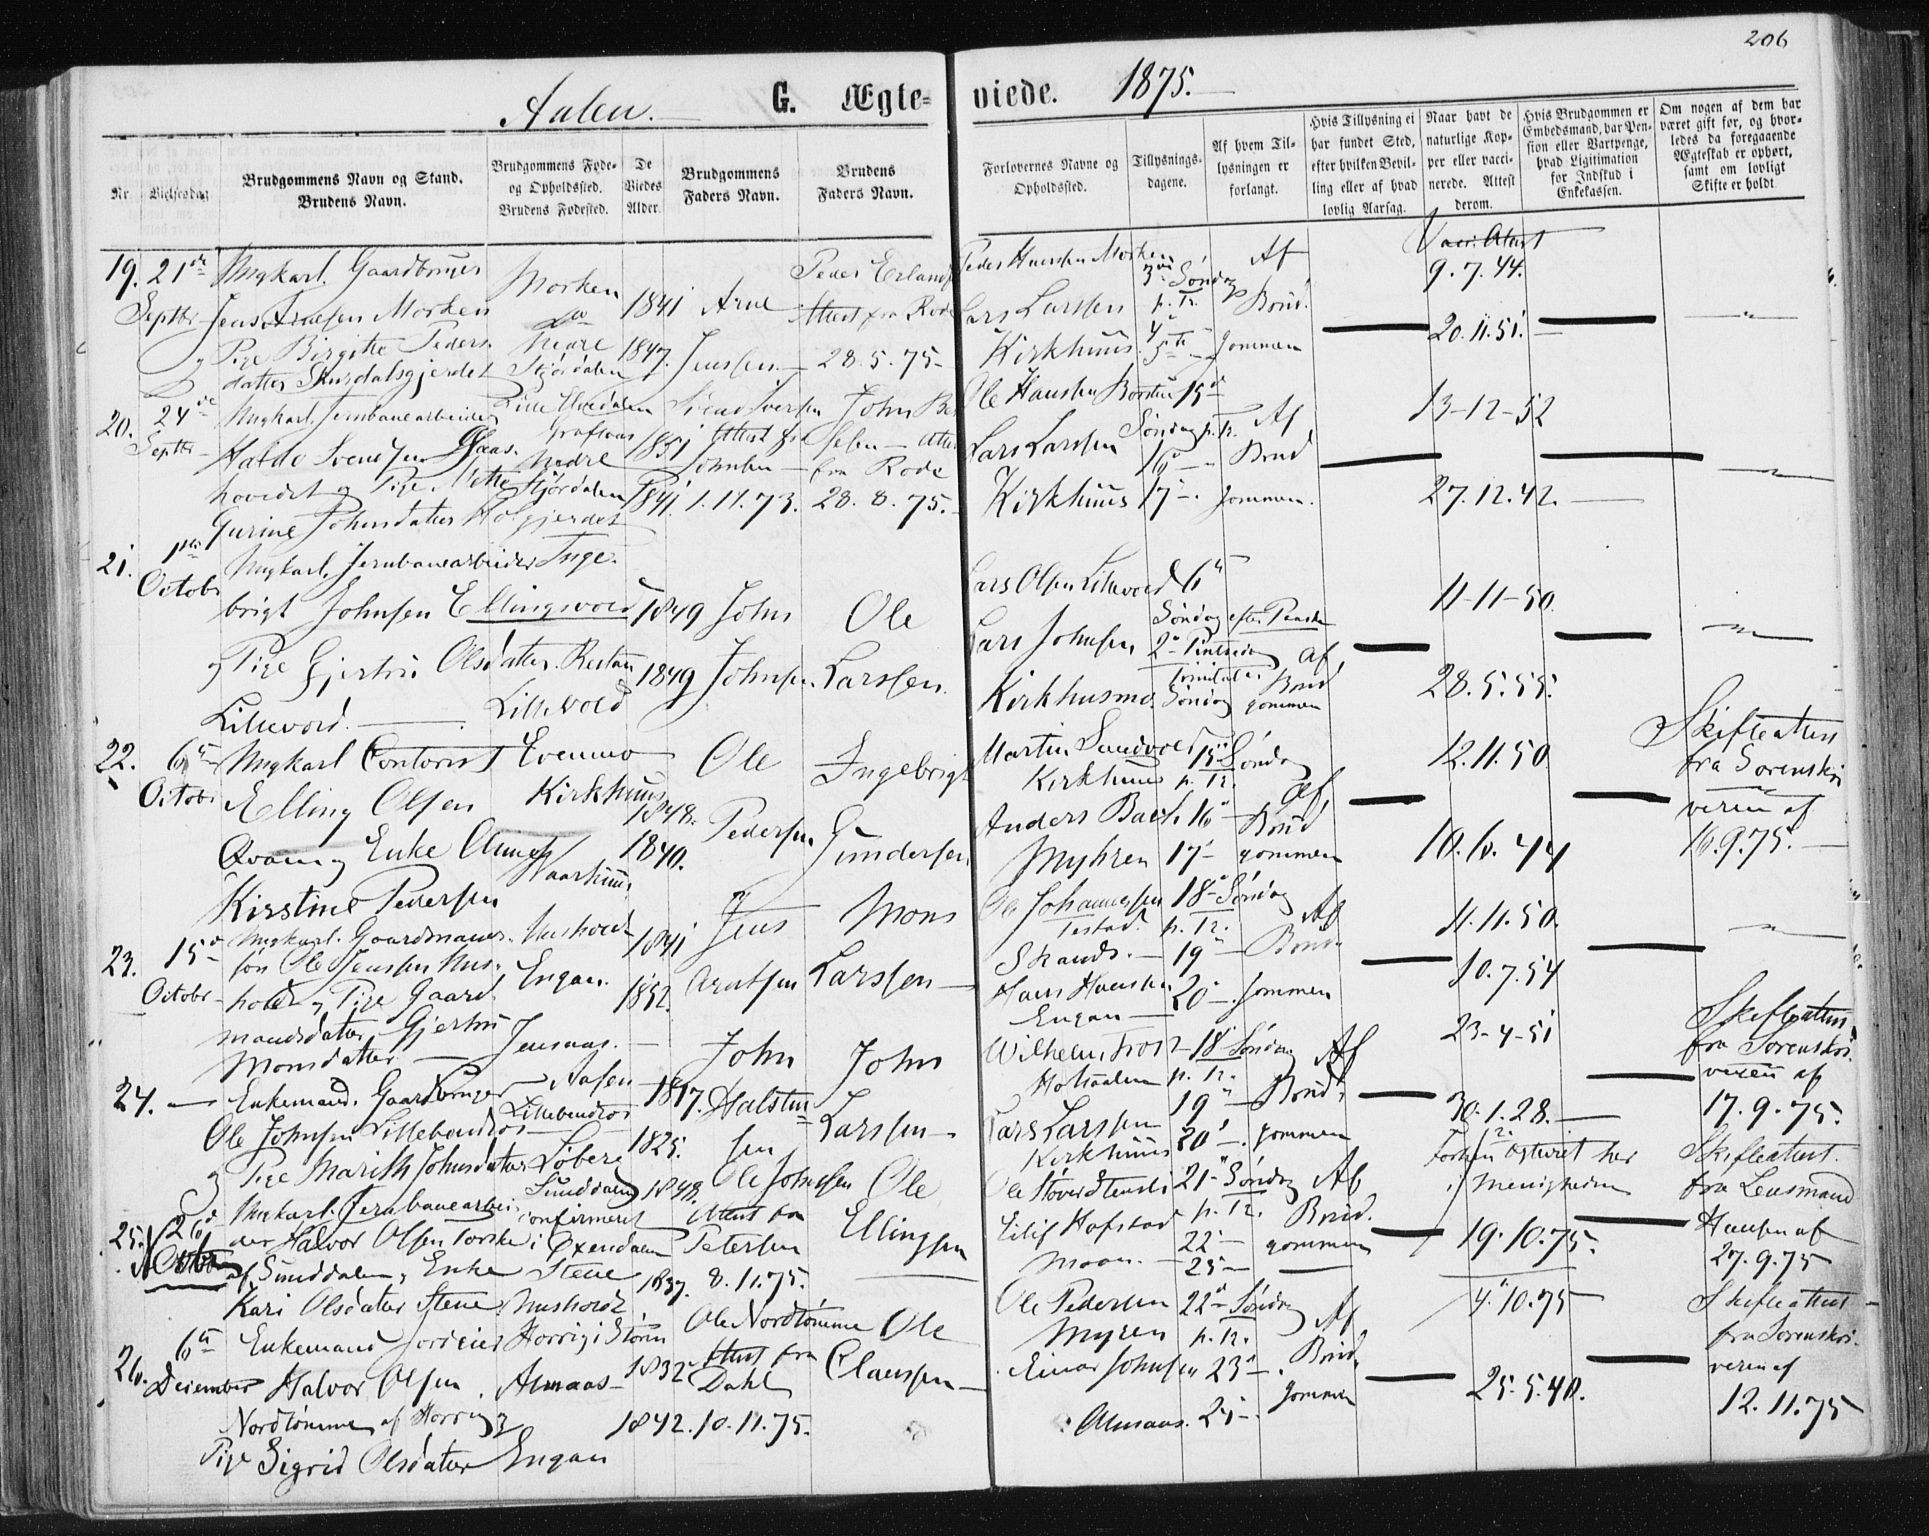 206
Aalen.
G. Ægte=
viede.
1875.
Nr.
Vielsesdag.
Brudgommens Navn og Stand.
Brudens Navn.
Brudgommens Føde-
og Opholdssted.
Brudens Fødested.
De
Viedes
Alder.
Brudgommens
Faders Navn.
Brudens
Faders Navn.
Forlovernes Navne og
Opholdssted.
Tillysnings-
dagene.
Af hvem Til-
lysningen er
forlangt.
Hvis Tillysning ei
har fundet Sted,
efter hvilken Bevil-
ling eller af hvad
lovlig Aarsag.
Naar havt de
naturlige Kop-
per eller vacci-
nerede. Attest
derom.
Hvis Brudgommen er
Embedsmand, har Pen-
sion eller Vartpenge,
hvad Legitimation
for Indskud i
Enkekassen.
Om nogen af dem har
været gift før, og hvor-
ledes da foregaaende
Ægteskab er ophørt,
samt om lovligt
Skifte er holdt
19. 21de
Septbr.
Ungkarl. Gaardbruger
Jens Arnesen Morken
og Pige Birgitte Peders
datter Skurdalsgjerdet
Morken
Nedre
Stjørdalen
1841
1847.
Arne
Jenssen
Peder Erlands
Attest fra Rode
28. 5. 75
Peder Hanssen Morken
Lars Larssen
Kirkhuus
3die Søndag
p. Tr.
4
5te
Af
Brud.
gommen
9. 7. 44.
20. 11. 51.
20. 24de
Septbr
Ungkarl. Jernbanearbeider
Haldo Svendsen Graas
hovedet og Pige. Mette
Gurine Johnsdatter Holgjerdet
Lille Uvedalen
Nedre
Stjørdalen
1851
1841.
Svend Iversen
Attest fra
Johnsen
1. 11. 73.
John
fra Rode
28. 8. 75.
Ole Hanssen
Lars Larssen
Kirkhuus
15de
Søndag p. Tr.
16
17
Af
Brud
gommen.
13-12-52
27. 12. 42.
21. 1ste
Octobr
Ungkarl. Jernbanearbeider Inge.
brigt Johnsen Ellingsvold
og Pige Gjertru Olsdatter.
Lillevold.
Lillevold
1849
1849
John
Johnsen
Ole
Larssen.
Lars Olsen Lillevold
Lars Johnsen
Kirkhusmo.
6te
Søndag efter Paaske
2den Pintsedag
Trinitatis
Søndag
af
Brud
gommen
11-11-50
28. 5. 55.
22. 6te
Octobr
Ungkarl Contorist
Elling Olsen
Qvam og Enke Anne
Kirstine Pedersen
Evenmo
Kirkhuus
Haarhuus
1848.
1840.
Ole
Pedersen
Ingebrigt
Gundersen
Martin Sundvold
Kirkhuus
Anders Bach
Myhren
15de Søndag
p. Tr.
16
17
af
Brud
gommen
12. 11. 50
10. 6. 44
Skifteattest
fra Sorenskri
veren af
16. 9. 75.
23. 15de
Octobr
Ungkarl. Gaardmands.
søn Ole Jenssen Hus.
hold og Pige Gaard.
mandsdatter Gjertru
Monsdatter
Hushold
Engan.
1841
1852
Jens
Arntsen
Mons
Larssen
Ole Johannessen
Strands.
Hans Hanssen
Engan
18de Søndag
p. Tr.
19
20
Af
Brud.
gommen
11. 11. 50.
10. 7. 54
24.
Enkemand. Gaardbruger
Ole Johnsen Lillebudros
og Pige Marith Johnsdatter
Jensaas.
Aasen
Lillebudros
1817.
1825.
John
Halstein
sen
John
Larssen
Wilhelm
Lars Larssen
Kirkhuus
18de Søndag
p. Tr.
19
20
Af
Brud.
gommen
23-4-51
30. 1. 28.
Skifteattest
fra Sorenskri.
veren af
17. 9. 75.
25. 26de
Octobr
Ungkarl. Jernbanearbei
der Halvor Olsen Torske
af Sunddalen, Enke
Kari Olsdatter Stene
Løbere
Sunddalen
confirmeret
i Øxendalen
Stene
Hushold
1848.
1837.
Ole Johnsen
Attest fra
Petersen
8. 11. 75.
Ole
Ellingsen
Eilif Hofstad
Moan.
21de Søndag
p. Tr.
22
23
Af
Brud.
gommen
her
i Menigheden
19. 10. 75.
Skifteattest.
fra Lensmand
Hansen af
27. 9. 75
26. 6te
December
Enkemand Jordeier
Halvor Olsen
Nordtømme af Horrig og
Pige Sigrid Olsdatter
Horrig i Støren
Almaas
Engan
1832
1842.
Ole Nordtømme
Attest fra
Dahl
10. 11. 75.
Ole
Claussen
Ole Pedersen
Myren
Einar Johnsen
Almaas.
22de Søndag
p. Tr.
23
24
Af
Brud.
gommen
4. 10. 75
25. 5. 40.
Skifteattest
fra Sorenskri.
veren af
12. 11. 75